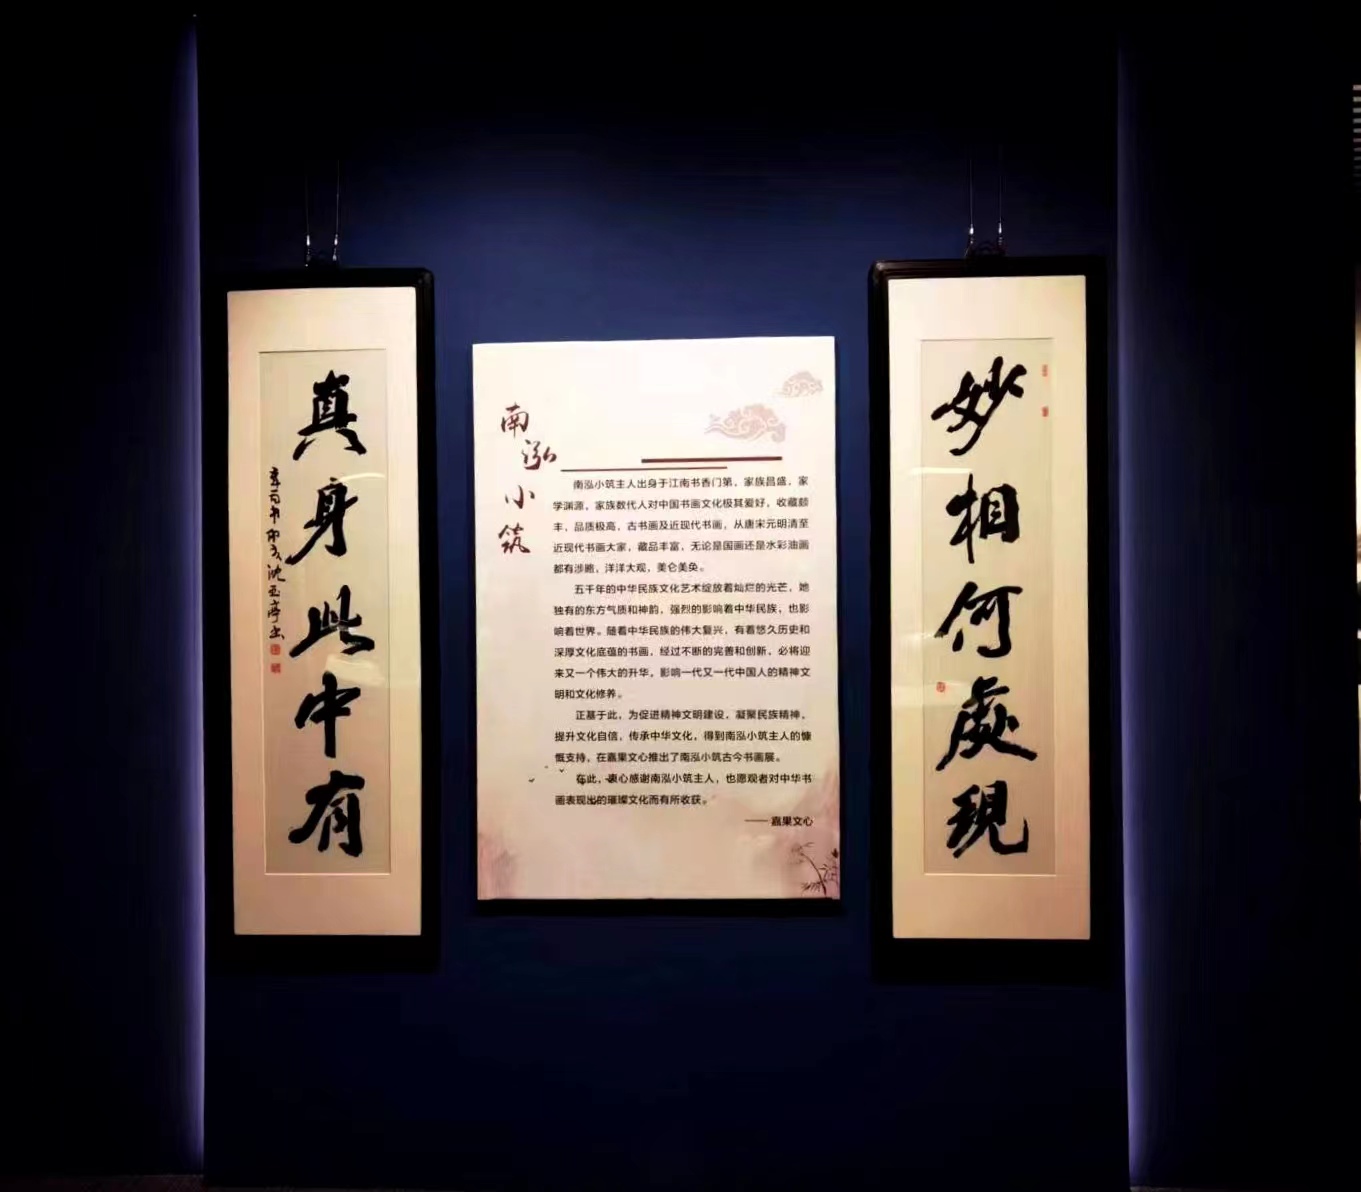 妙相何處現
南泓小筑
南泓小筑主人出身于江南书香门第，家族昌盛，家
学渊源，家族数代人对中国书画文化极其爱好，收藏颇
丰，品质极高，古书画及近现代书画，从唐宋元明清至
近现代书画大家，藏品丰富，无论是国画还是水彩油画
都有涉略，洋洋大观，美仑美奂。
五千年的中华民族文化艺术绽放着灿烂的光芒，她
独有的东方气质和神韵，强烈的影响着中华民族，也影
响着世界。随着中华民族的伟大复兴，有着悠久历史和
深厚文化底蕴的书画，经过不断的完善和创新，必将迎
来又一个伟大的升华，影响一代又一代中国人的精神文
明和文化修养。
正基于此，为促进精神文明建设，凝聚民族精神，
提升文化自信，传承中华文化，得到南泓小筑主人的慷
慨支持，在嘉果文心推出了南泓小筑古今书画展。
在此，衷心感谢南泓小筑主人，也愿观者对中华书
画表现出的璀璨文化而有所收获。
——嘉果文心
真身此中有
沈